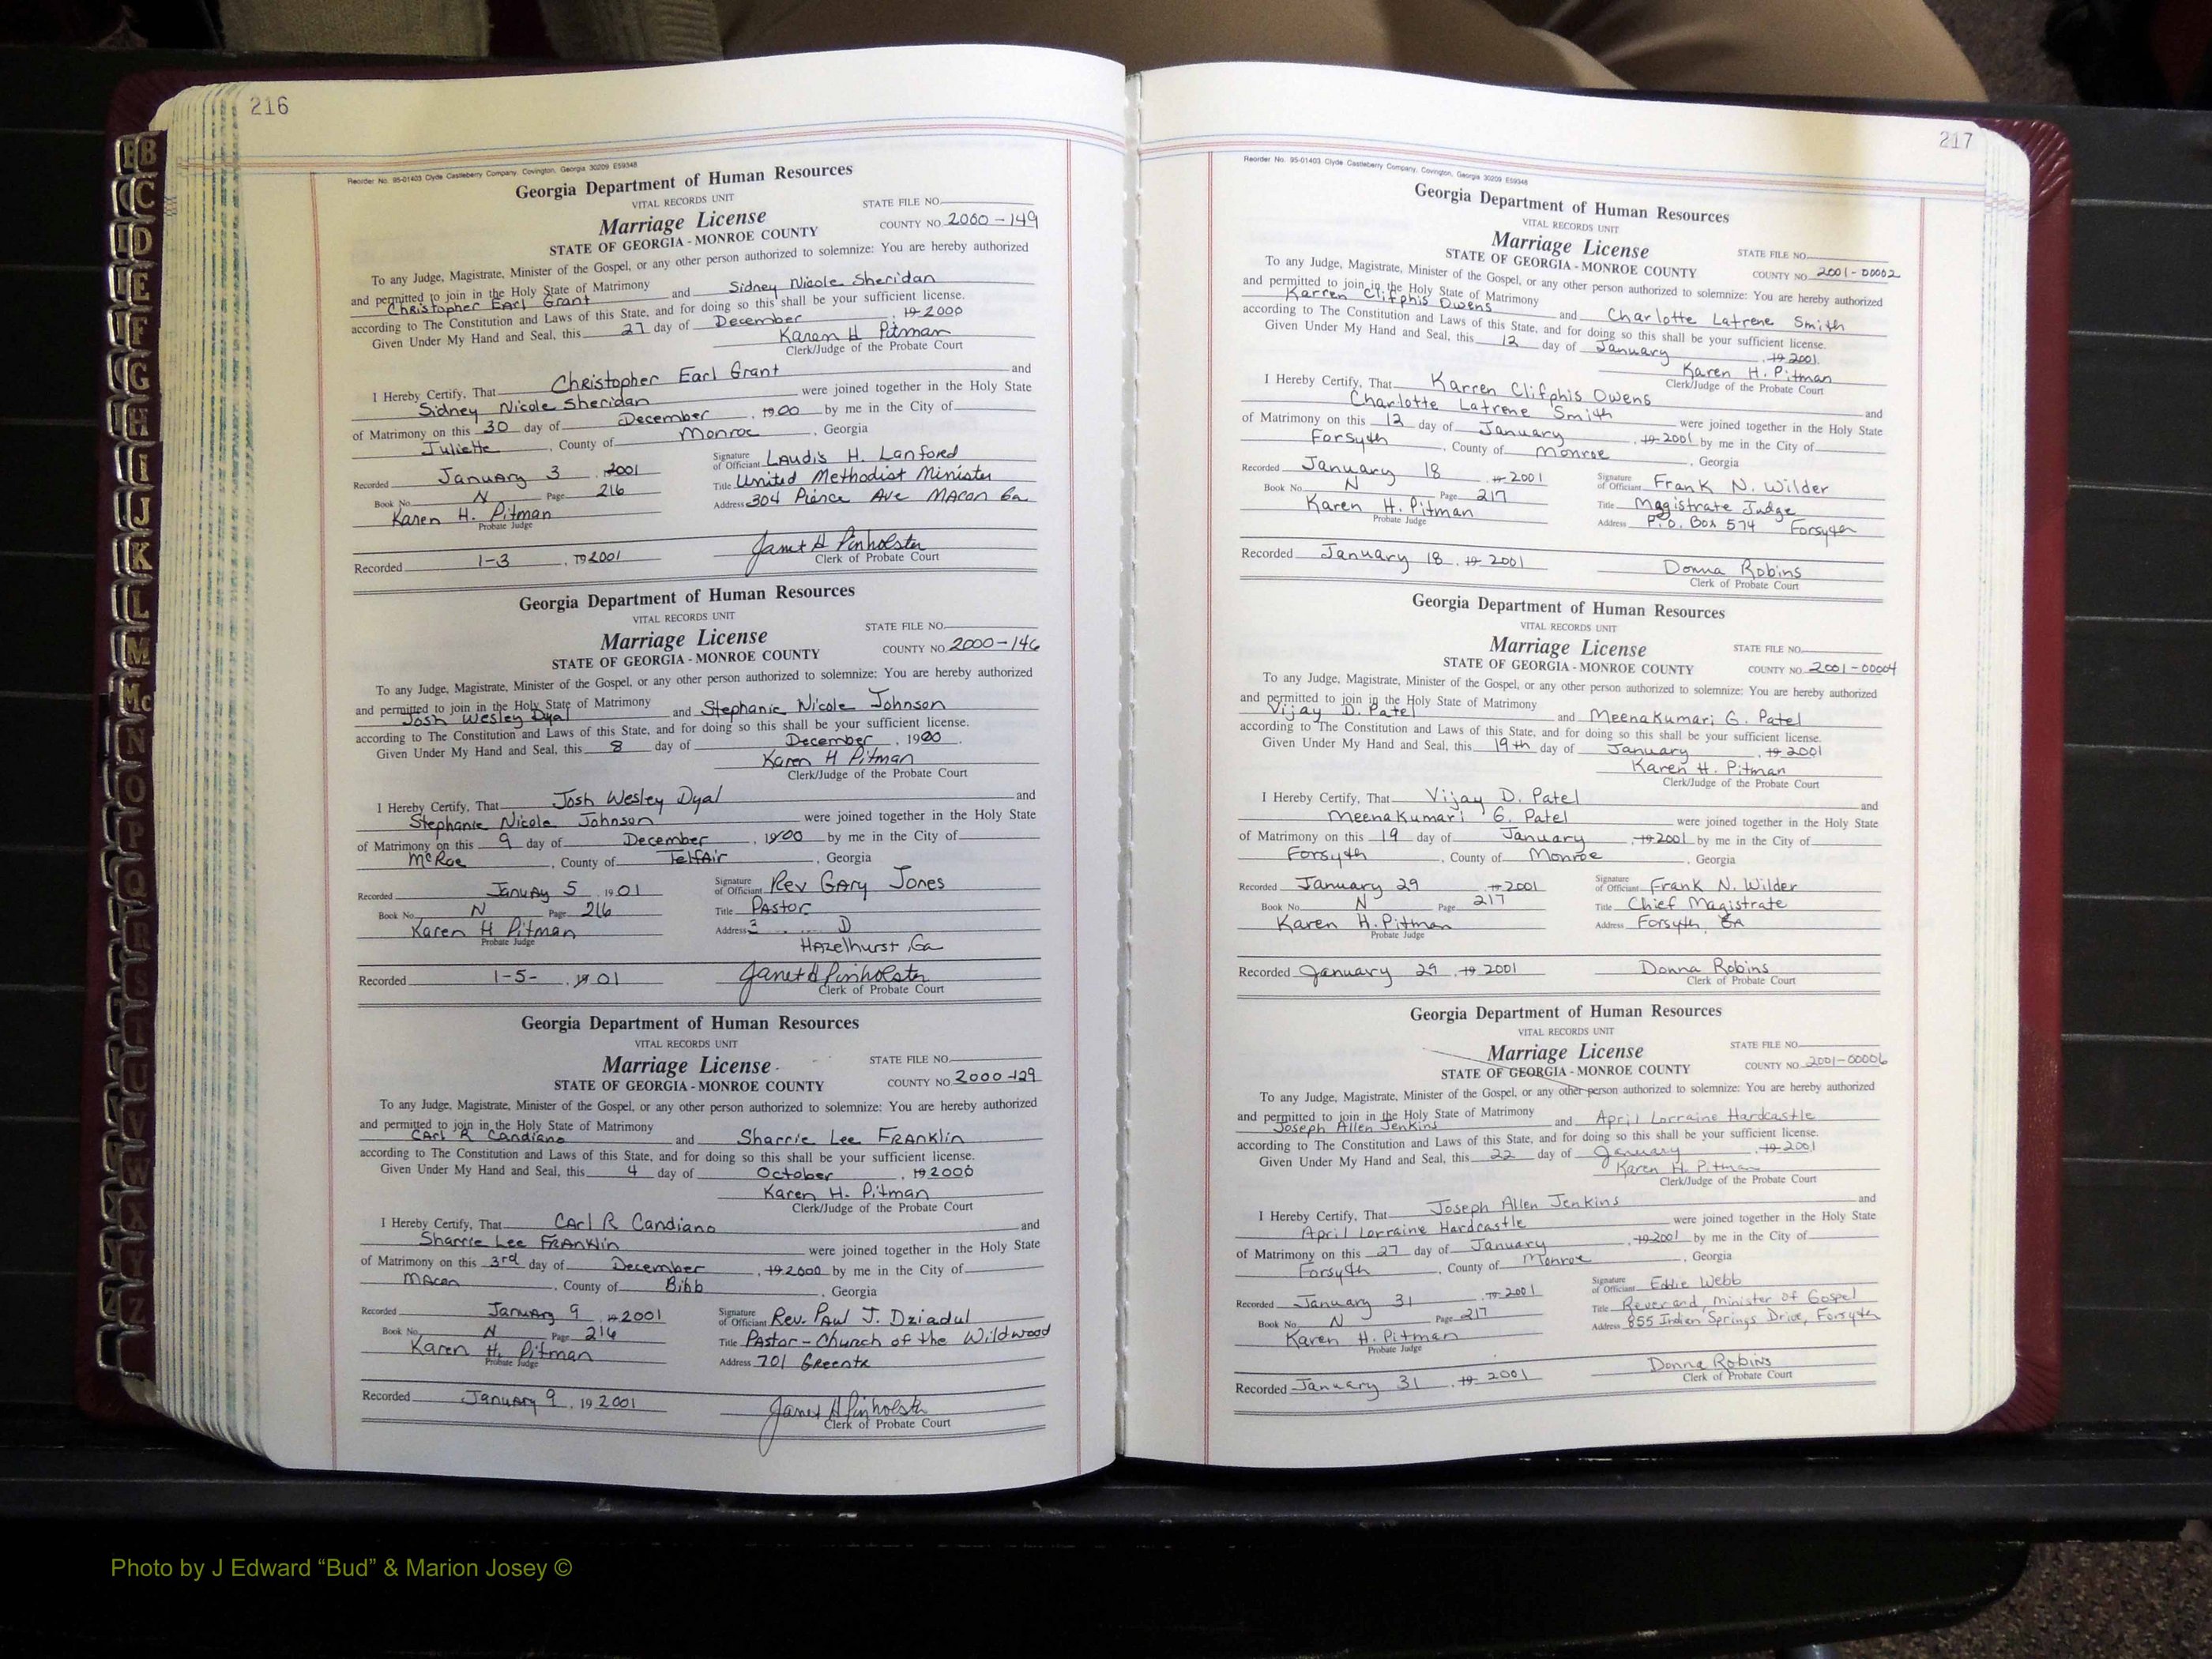 216
Reorder No. 95-01403 Clyde Castleberry Company, Covington, Georgia 30209 E59348
Georgia Department of Human Resources
VITAL RECORDS UNIT
STATE FILE NO.
Marriage License
COUNTY NO. 2000-149
STATE OF GEORGIA - MONROE COUNTY
To any Judge, Magistrate, Minister of the Gospel, or any other person authorized to solemnize: You are hereby authorized
and permitted to join in the Holy State of Matrimony
Christopher Earl Grant and Sidney Nicole Sheridan
according to The Constitution and Laws of this State, and for doing so this shall be your sufficient license.
Given Under My Hand and Seal, this 27 day of December, 19 2000
Karen H Pitman
Clerk/Judge of the Probate Court
I Hereby Certify, That Christopher Earl Grant and
Sidney Nicole Sheridan were joined together in the Holy State
of Matrimony on this 30 day of December, 1900 by me in the City of
Juliette, County of Monroe, Georgia
Recorded January 3, 2001
Signature of Officiant Laudis H. Lanford
Book No. N Page 216
Title United Methodist Minister
Karen H. Pitman
Probate Judge
Address 304 Pierce Ave Macon Ga
Recorded 1-3, 19 2001
Janet A Pinholster
Clerk of Probate Court
Georgia Department of Human Resources
VITAL RECORDS UNIT
STATE FILE NO.
Marriage License
COUNTY NO. 2000-146
STATE OF GEORGIA - MONROE COUNTY
To any Judge, Magistrate, Minister of the Gospel, or any other person authorized to solemnize: You are hereby authorized
and permitted to join in the Holy State of Matrimony
Josh Wesley Dyal and Stephanie Nicole Johnson
according to The Constitution and Laws of this State, and for doing so this shall be your sufficient license.
Given Under My Hand and Seal, this 8 day of December, 1900.
Karen H Pitman
Clerk/Judge of the Probate Court
I Hereby Certify, That Josh Wesley Dyal and
Stephanie Nicole Johnson were joined together in the Holy State
of Matrimony on this 9 day of December, 1900 by me in the City of
McRae, County of Telfair, Georgia
Recorded January 5, 19 01
Signature of Officiant Rev Gary Jones
Book No. N Page 216
Title Pastor
Karen H Pitman
Probate Judge
Address
Hazelhurst, Ga
Recorded 1-5-, 19 01
Janet A Pinholster
Clerk of Probate Court
Georgia Department of Human Resources
VITAL RECORDS UNIT
STATE FILE NO.
Marriage License
COUNTY NO. 2000-129
STATE OF GEORGIA - MONROE COUNTY
To any Judge, Magistrate, Minister of the Gospel, or any other person authorized to solemnize: You are hereby authorized
and permitted to join in the Holy State of Matrimony
Carl R Candiano and Sharrie Lee Franklin
according to The Constitution and Laws of this State, and for doing so this shall be your sufficient license.
Given Under My Hand and Seal, this 4 day of October, 19 2000
Karen H. Pitman
Clerk/Judge of the Probate Court
I Hereby Certify, That Carl R Candiano and
Sharrie Lee Franklin were joined together in the Holy State
of Matrimony on this 3rd day of December, 19 2000 by me in the City of
Macon, County of Bibb, Georgia
Recorded January 9, 19 2001
Signature of Officiant Rev. Paul J. Dziadul
Book No. N Page 216
Title Pastor - Church of the Wildwood
Karen H. Pitman
Probate Judge
Address 701 Greentx
Recorded January 9, 19 2001
Janet A Pinholster
Clerk of Probate Court
217
Reorder No. 95-01403 Clyde Castleberry Company, Covington, Georgia 30209 E59348
Georgia Department of Human Resources
VITAL RECORDS UNIT
Marriage License
STATE FILE NO.
STATE OF GEORGIA - MONROE COUNTY
COUNTY NO. 2001-00002
To any Judge, Magistrate, Minister of the Gospel, or any other person authorized to solemnize: You are hereby authorized
and permitted to join in the Holy State of Matrimony
Karren Clifphis Owens and Charlotte Latrene Smith
according to The Constitution and Laws of this State, and for doing so this shall be your sufficient license.
Given Under My Hand and Seal, this 12 day of January, 19 2001.
Karen H. Pitman
Clerk/Judge of the Probate Court
I Hereby Certify, That Karren Clifphis Owens and
Charlotte Latrene Smith were joined together in the Holy State
of Matrimony on this 12 day of January, 19 2001 by me in the City of
Forsyth, County of Monroe, Georgia
Recorded January 18, 19 2001
Signature of Officiant Frank N. Wilder
Book No. N Page 217
Title Magistrate Judge
Karen H. Pitman
Probate Judge
Address P.O. Box 574 Forsyth
Recorded January 18, 19 2001
Donna Robins
Clerk of Probate Court
Georgia Department of Human Resources
VITAL RECORDS UNIT
Marriage License
STATE FILE NO.
STATE OF GEORGIA - MONROE COUNTY
COUNTY NO. 2001-00004
To any Judge, Magistrate, Minister of the Gospel, or any other person authorized to solemnize: You are hereby authorized
and permitted to join in the Holy State of Matrimony
Vijay D. Patel and Meenakumari G. Patel
according to The Constitution and Laws of this State, and for doing so this shall be your sufficient license.
Given Under My Hand and Seal, this 19th day of January, 19 2001
Karen H. Pitman
Clerk/Judge of the Probate Court
I Hereby Certify, That Vijay D. Patel and
Meenakumari G. Patel were joined together in the Holy State
of Matrimony on this 19 day of January, 19 2001 by me in the City of
Forsyth, County of Monroe, Georgia
Recorded January 29, 19 2001
Signature of Officiant Frank N. Wilder
Book No. N Page 217
Title Chief Magistrate
Karen H. Pitman
Probate Judge
Address Forsyth, GA
Recorded January 29, 19 2001
Donna Robins
Clerk of Probate Court
Georgia Department of Human Resources
VITAL RECORDS UNIT
Marriage License
STATE FILE NO.
STATE OF GEORGIA - MONROE COUNTY
COUNTY NO. 2001-00006
To any Judge, Magistrate, Minister of the Gospel, or any other person authorized to solemnize: You are hereby authorized
and permitted to join in the Holy State of Matrimony
Joseph Allen Jenkins and April Lorraine Hardcastle
according to The Constitution and Laws of this State, and for doing so this shall be your sufficient license.
Given Under My Hand and Seal, this 22 day of January, 19 2001
Karen H. Pitman
Clerk/Judge of the Probate Court
I Hereby Certify, That Joseph Allen Jenkins and
April Lorraine Hardcastle were joined together in the Holy State
of Matrimony on this 27 day of January, 19 2001 by me in the City of
Forsyth, County of Monroe, Georgia
Recorded January 31, 19 2001
Signature of Officiant Eddie Webb
Book No. N Page 217
Title Reverand, Minister of Gospel
Karen H. Pitman
Probate Judge
Address 855 Indian Springs Drive, Forsyth
Recorded January 31, 19 2001
Donna Robins
Clerk of Probate Court
B
C
D
E
F
G
H
I
J
K
L
M
Mc
N
O
P
Q
R
S
T
U
V
W
X
Y
Z
Photo by J Edward “Bud” & Marion Josey ©